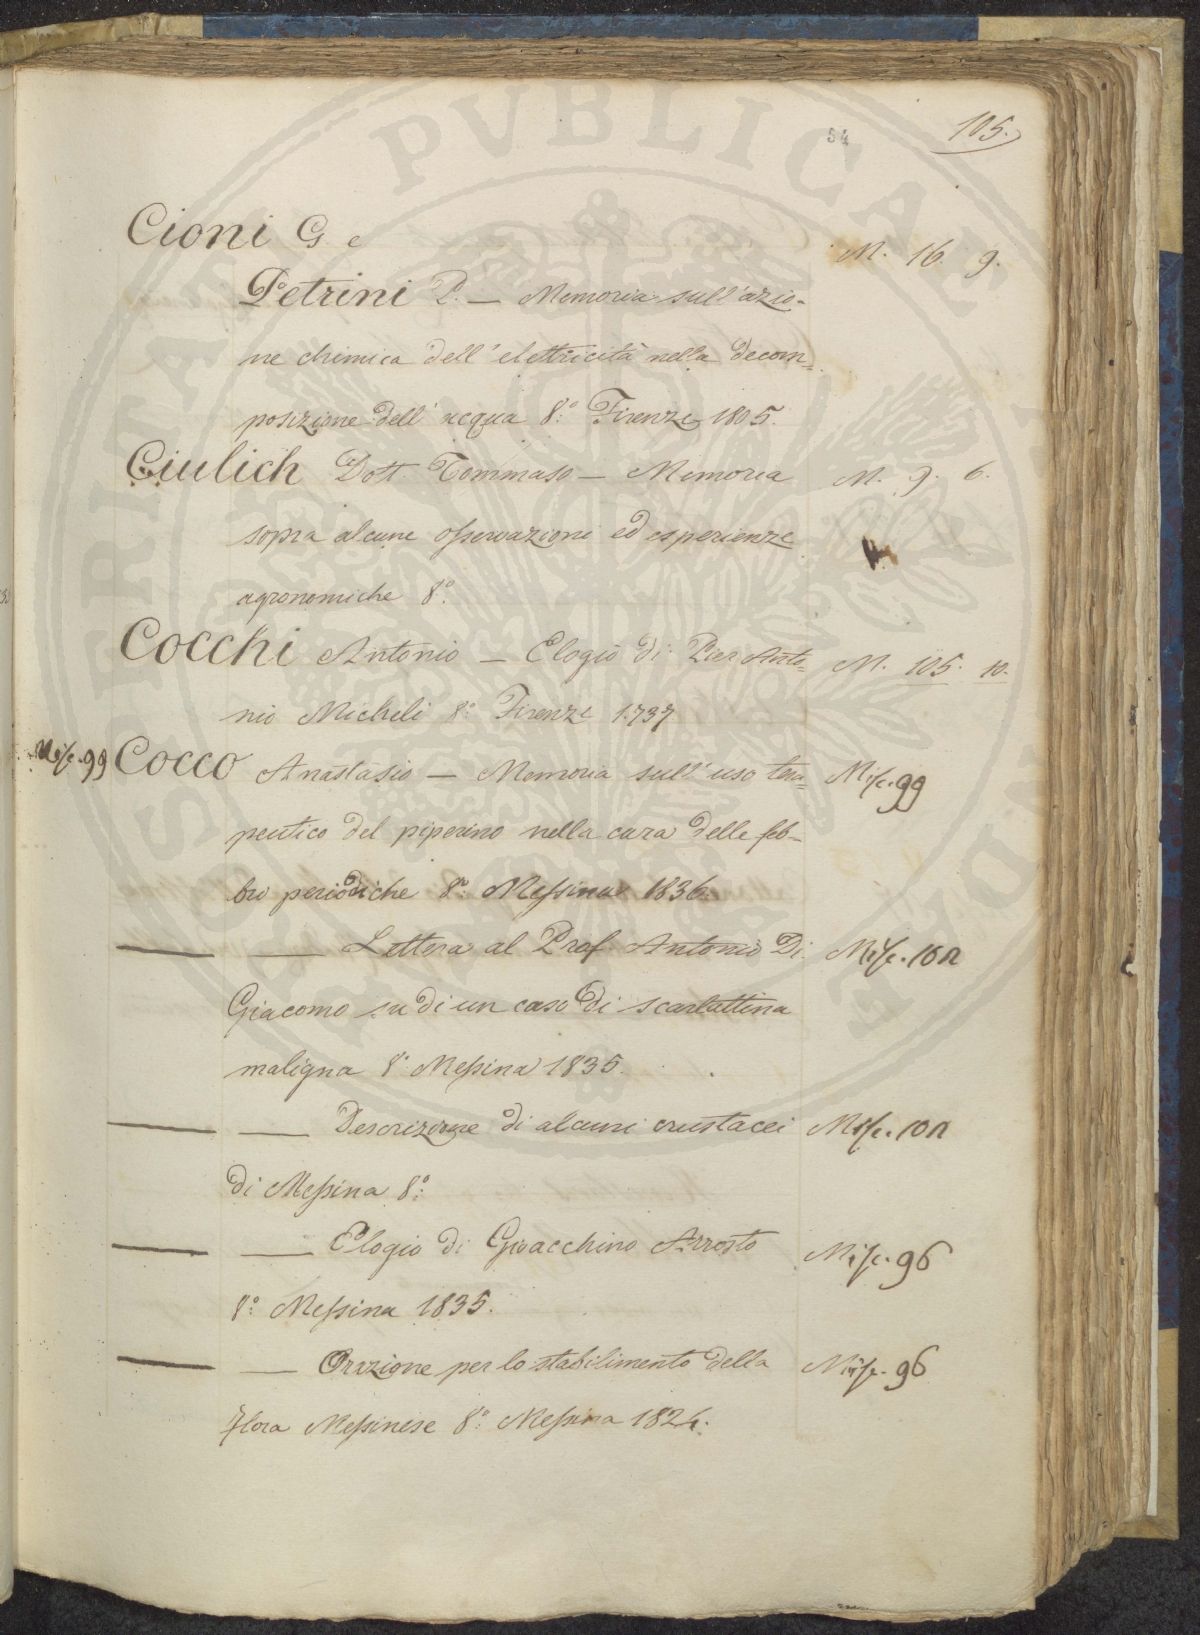 54
105.
Cioni G. e
M. 16 9.
Petrini P. — Memoria sull'azio-
ne chimica dell'elettricità nella decom=
posizione dell'acqua 8.° Firenze 1805.
Ciulich Dott Tommaso — Memoria M. 9. 6.
sopra alcune osservazioni ed esperienze
agronomiche 8.°
Cocchi Antonio — Elogio di Pier Anto= M. 105. 10.
nio Micheli 8.° Firenze 1737
Misc. 99 Cocco Anastasio — Memoria sull'uso tera= Misc. 99
peutico del piperino nella cura delle feb-
bri periodiche 8.° Messina 1836.
— — Lettera al Prof. Antonio Di Misc. 102
Giacomo su di un caso di scarlattina
maligna 8.° Messina 1835.
— — Descrizione di alcuni crustacei Misc. 102
di Messina 8.°
— — Elogio di Gioacchino Arrosto Misc. 96
8.° Messina 1835.
— — Orazione per lo stabilimento della Misc. 96
Flora Messinese 8.° Messina 1824.